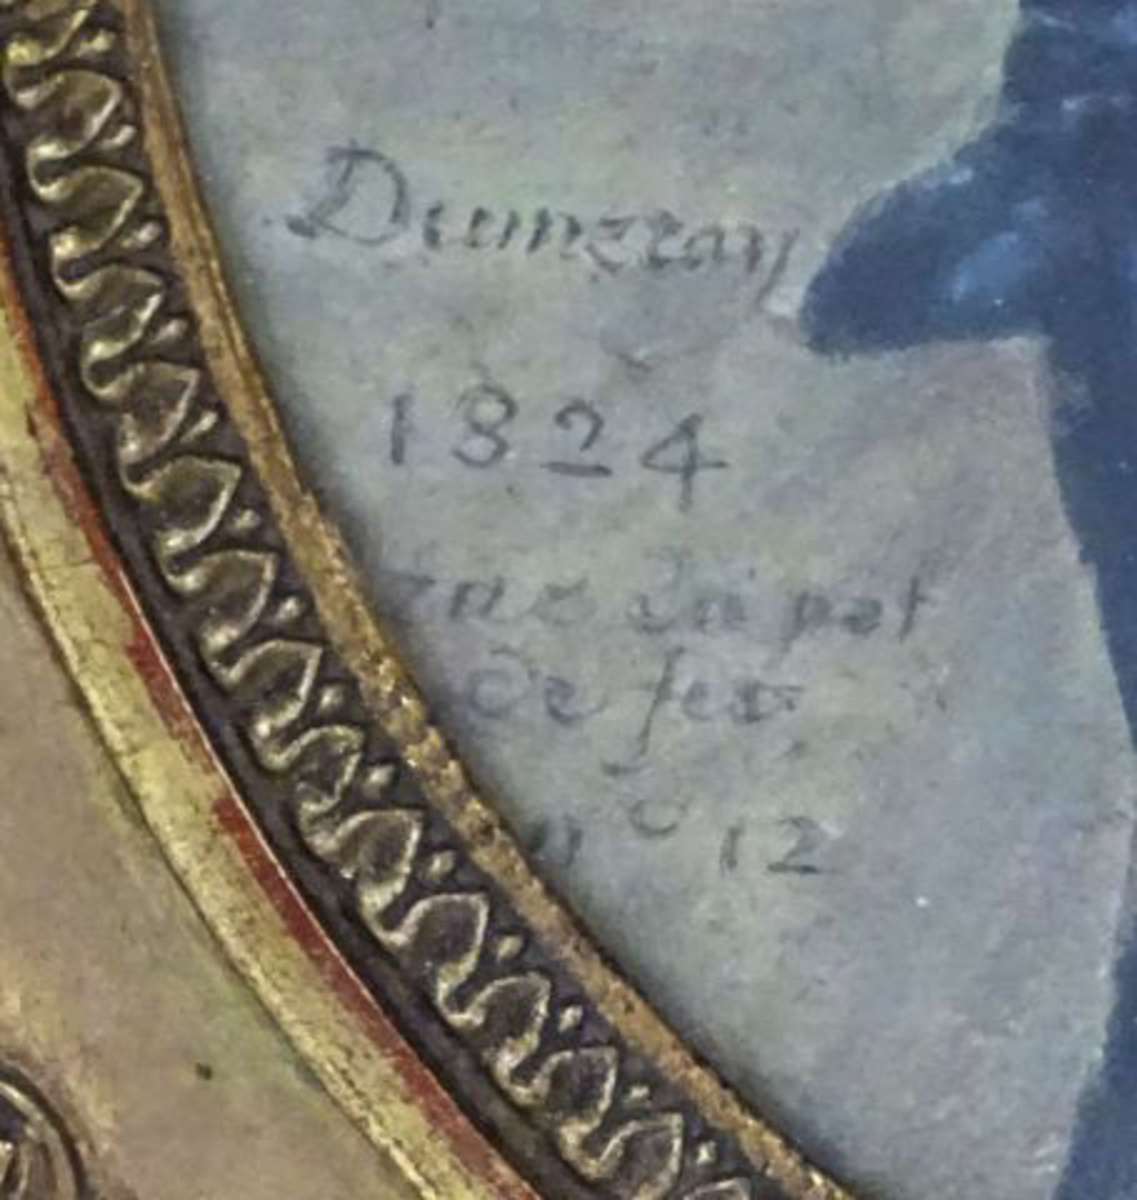 Dumeray
1824
rue du pot
de fer
n° 12